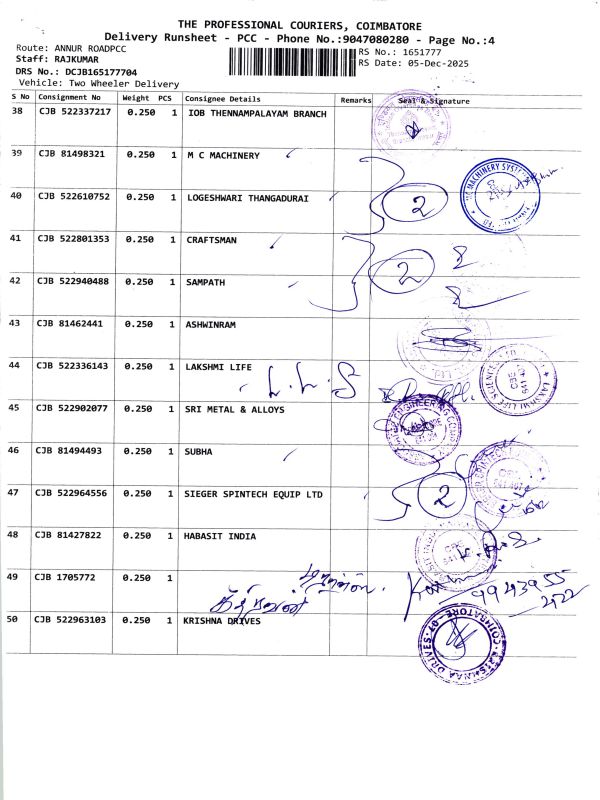 THE PROFESSIONAL COURIERS, COIMBATORE
Delivery Runsheet - PCC - Phone No.:9047080280 - Page No.:4
Route: ANNUR ROADPCC
RS No.: 1651777
Staff: RAJKUMAR
RS Date: 05-Dec-2025
DRS No.: DCJB165177704
Vehicle: Two Wheeler Delivery
S No Consignment No Weight PCS Consignee Details Remarks Seal & Signature
38 CJB 522337217 0.250 1 IOB THENNAMPALAYAM BRANCH
39 CJB 81498321 0.250 1 M C MACHINERY
40 CJB 522610752 0.250 1 LOGESHWARI THANGADURAI 2
41 CJB 522801353 0.250 1 CRAFTSMAN
42 CJB 522940488 0.250 1 SAMPATH 2
43 CJB 81462441 0.250 1 ASHWINRAM
44 CJB 522336143 0.250 1 LAKSHMI LIFE
L. L. S
45 CJB 522902077 0.250 1 SRI METAL & ALLOYS
46 CJB 81494493 0.250 1 SUBHA
47 CJB 522964556 0.250 1 SIEGER SPINTECH EQUIP LTD 2
48 CJB 81427822 0.250 1 HABASIT INDIA
49 CJB 1705772 0.250 1
9943955
2122
50 CJB 522963103 0.250 1 KRISHNA DRIVES